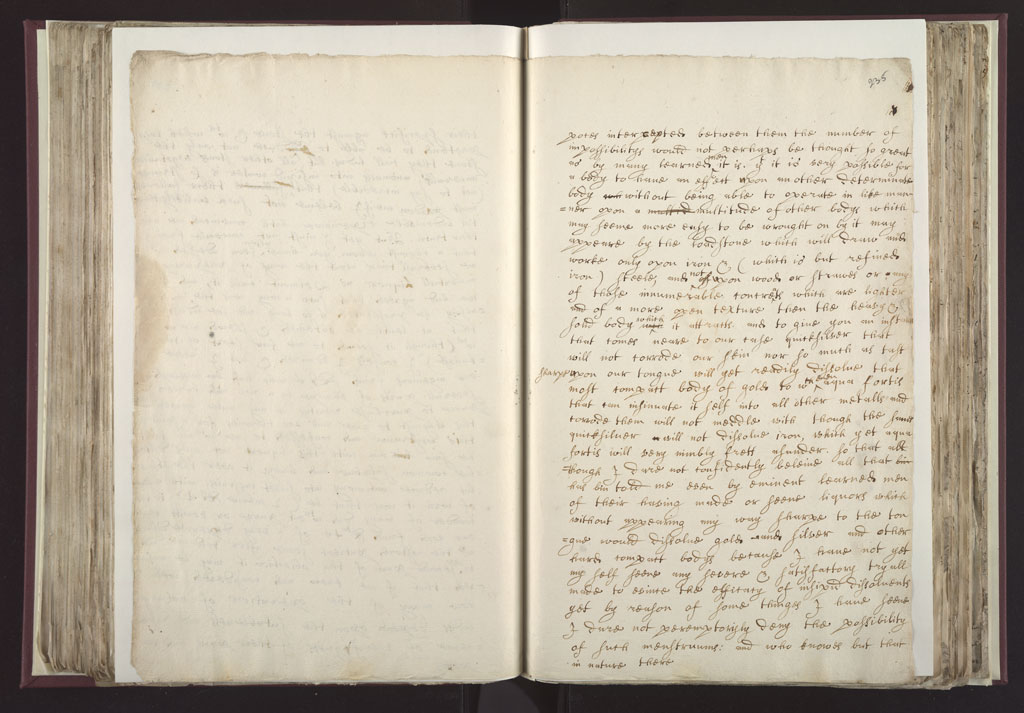 235
pores intercepted between them the number of
impossibilitys would not perhaps be thought so great
as by many learned men it is. if it is very possible for
a body to have an effect upon an other determinate
body without being able to operate in like man
=ner upon a multitude of other bodys which
may seeme more easy to be wrought on by it may
appeare by the loadstone which will draw and
worke only upon iron & (which is but refined
iron) steele, and not upon wood or strawes or any
of those innumerable concrets which are lighter
and of a more open texture then the heavy &
solid body which it attracts. and to give you an instance
that comes neare to our case quicksilver that
will not corrode our skin nor so much as tast
sharpe upon our tongue will yet readily dissolve that
most compact body of gold to which even aqua fortis
that can insinuate it self into all other metalls and
corrode them will not meddle with though the same
quicksilver will not dissolve iron, which yet aqua
fortis will very nimbly frett asunder. so that alt
=hough I dare not confidently beleive all that
has bin told me even by eminent learned men
of their having made or seene liquors which
without appearing any way sharpe to the ton
=gue would dissolve gold and silver and other
hard compact bodys because I have not yet
my self seene any severe & satisfactory tryall
made to evince the efficacy of insipid dissolvents
yet by reason of some things I have seene
I dare not peremptorily deny the possibility
of such menstruums: and who knows but that
in nature there